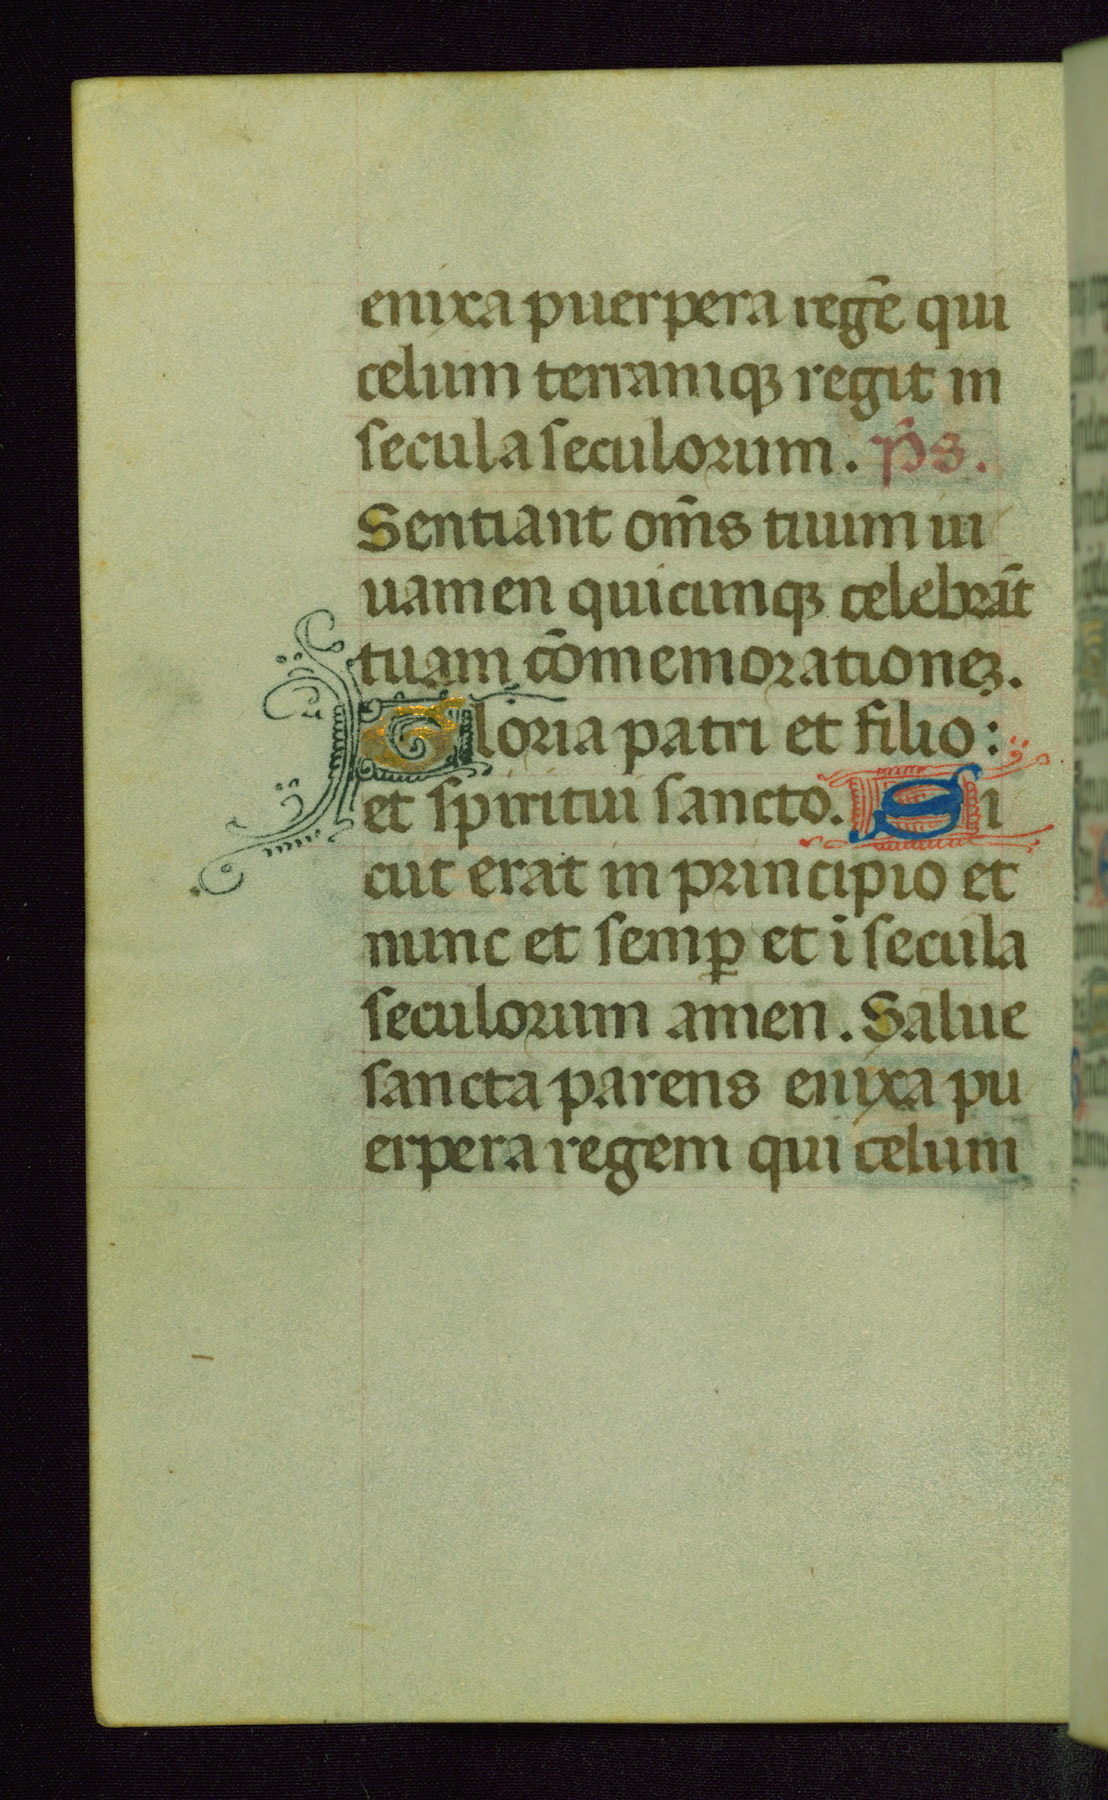 enixa puerpera regē qui
celum terramqꝫ regit in
secula seculorum. p̄s.
Sentiant om̄s tuum iu
uamen quicumqꝫ celebrāt
tuam cōmemorationeꝫ.
Gloria patri et filio:
et spiritui sancto. Si
cut erat in principio et
nunc et semꝑ et ī secula
seculorum amen. Salue
sancta parens enixa pu
erpera regem qui celum